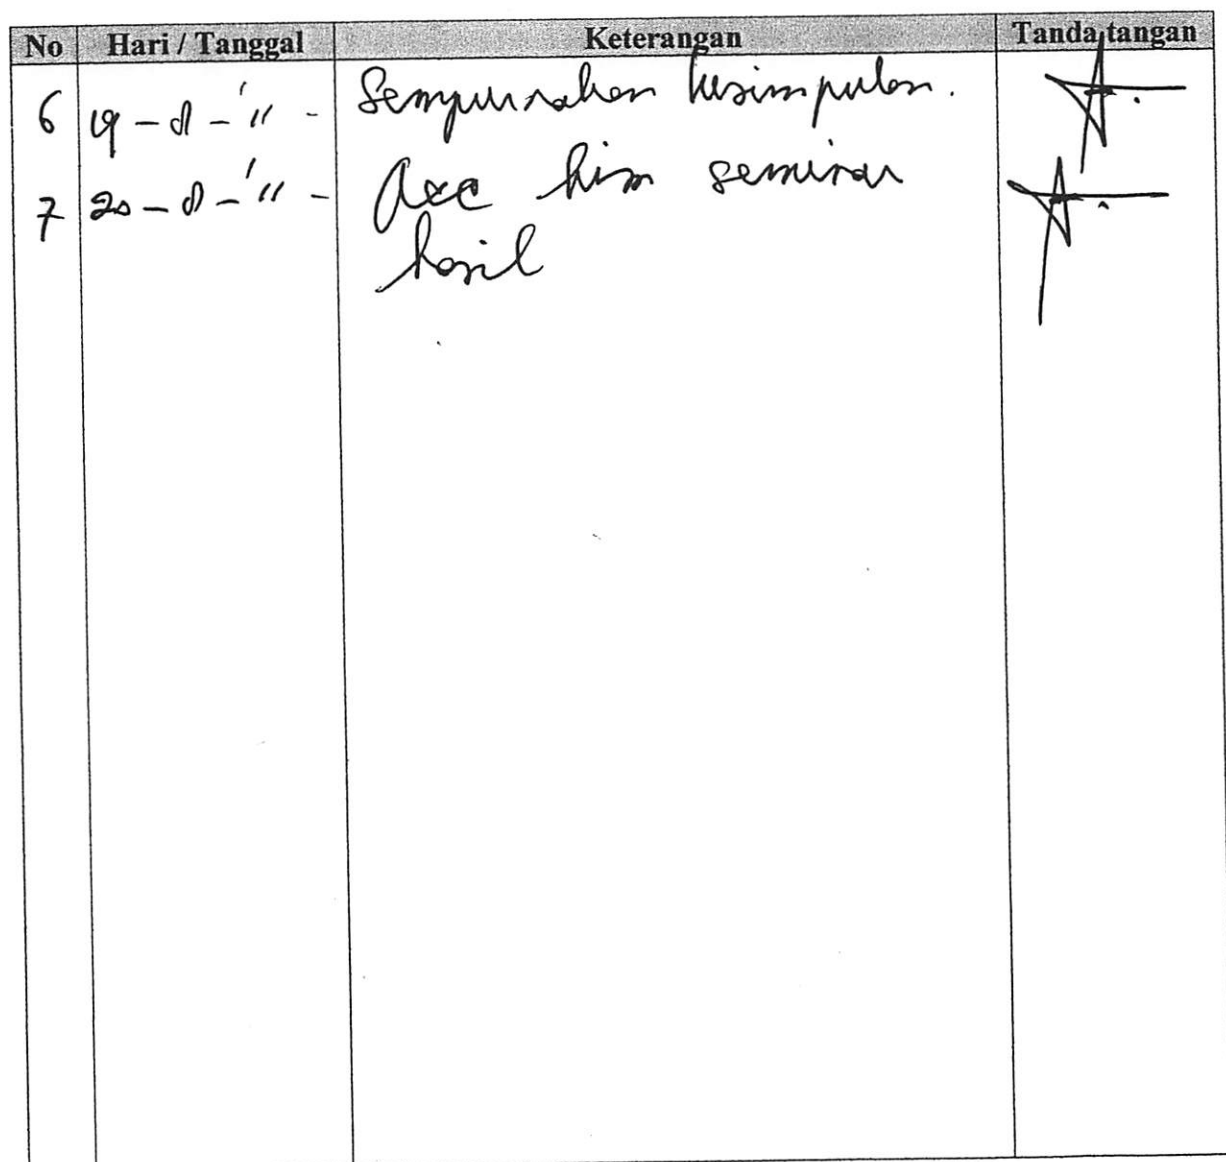 No Hari / Tanggal Keterangan Tanda tangan
6 19 - 8 - '11 - Sempurnakan kesimpulan.
7 20 - 8 - '11 - Acc seminar
hasil